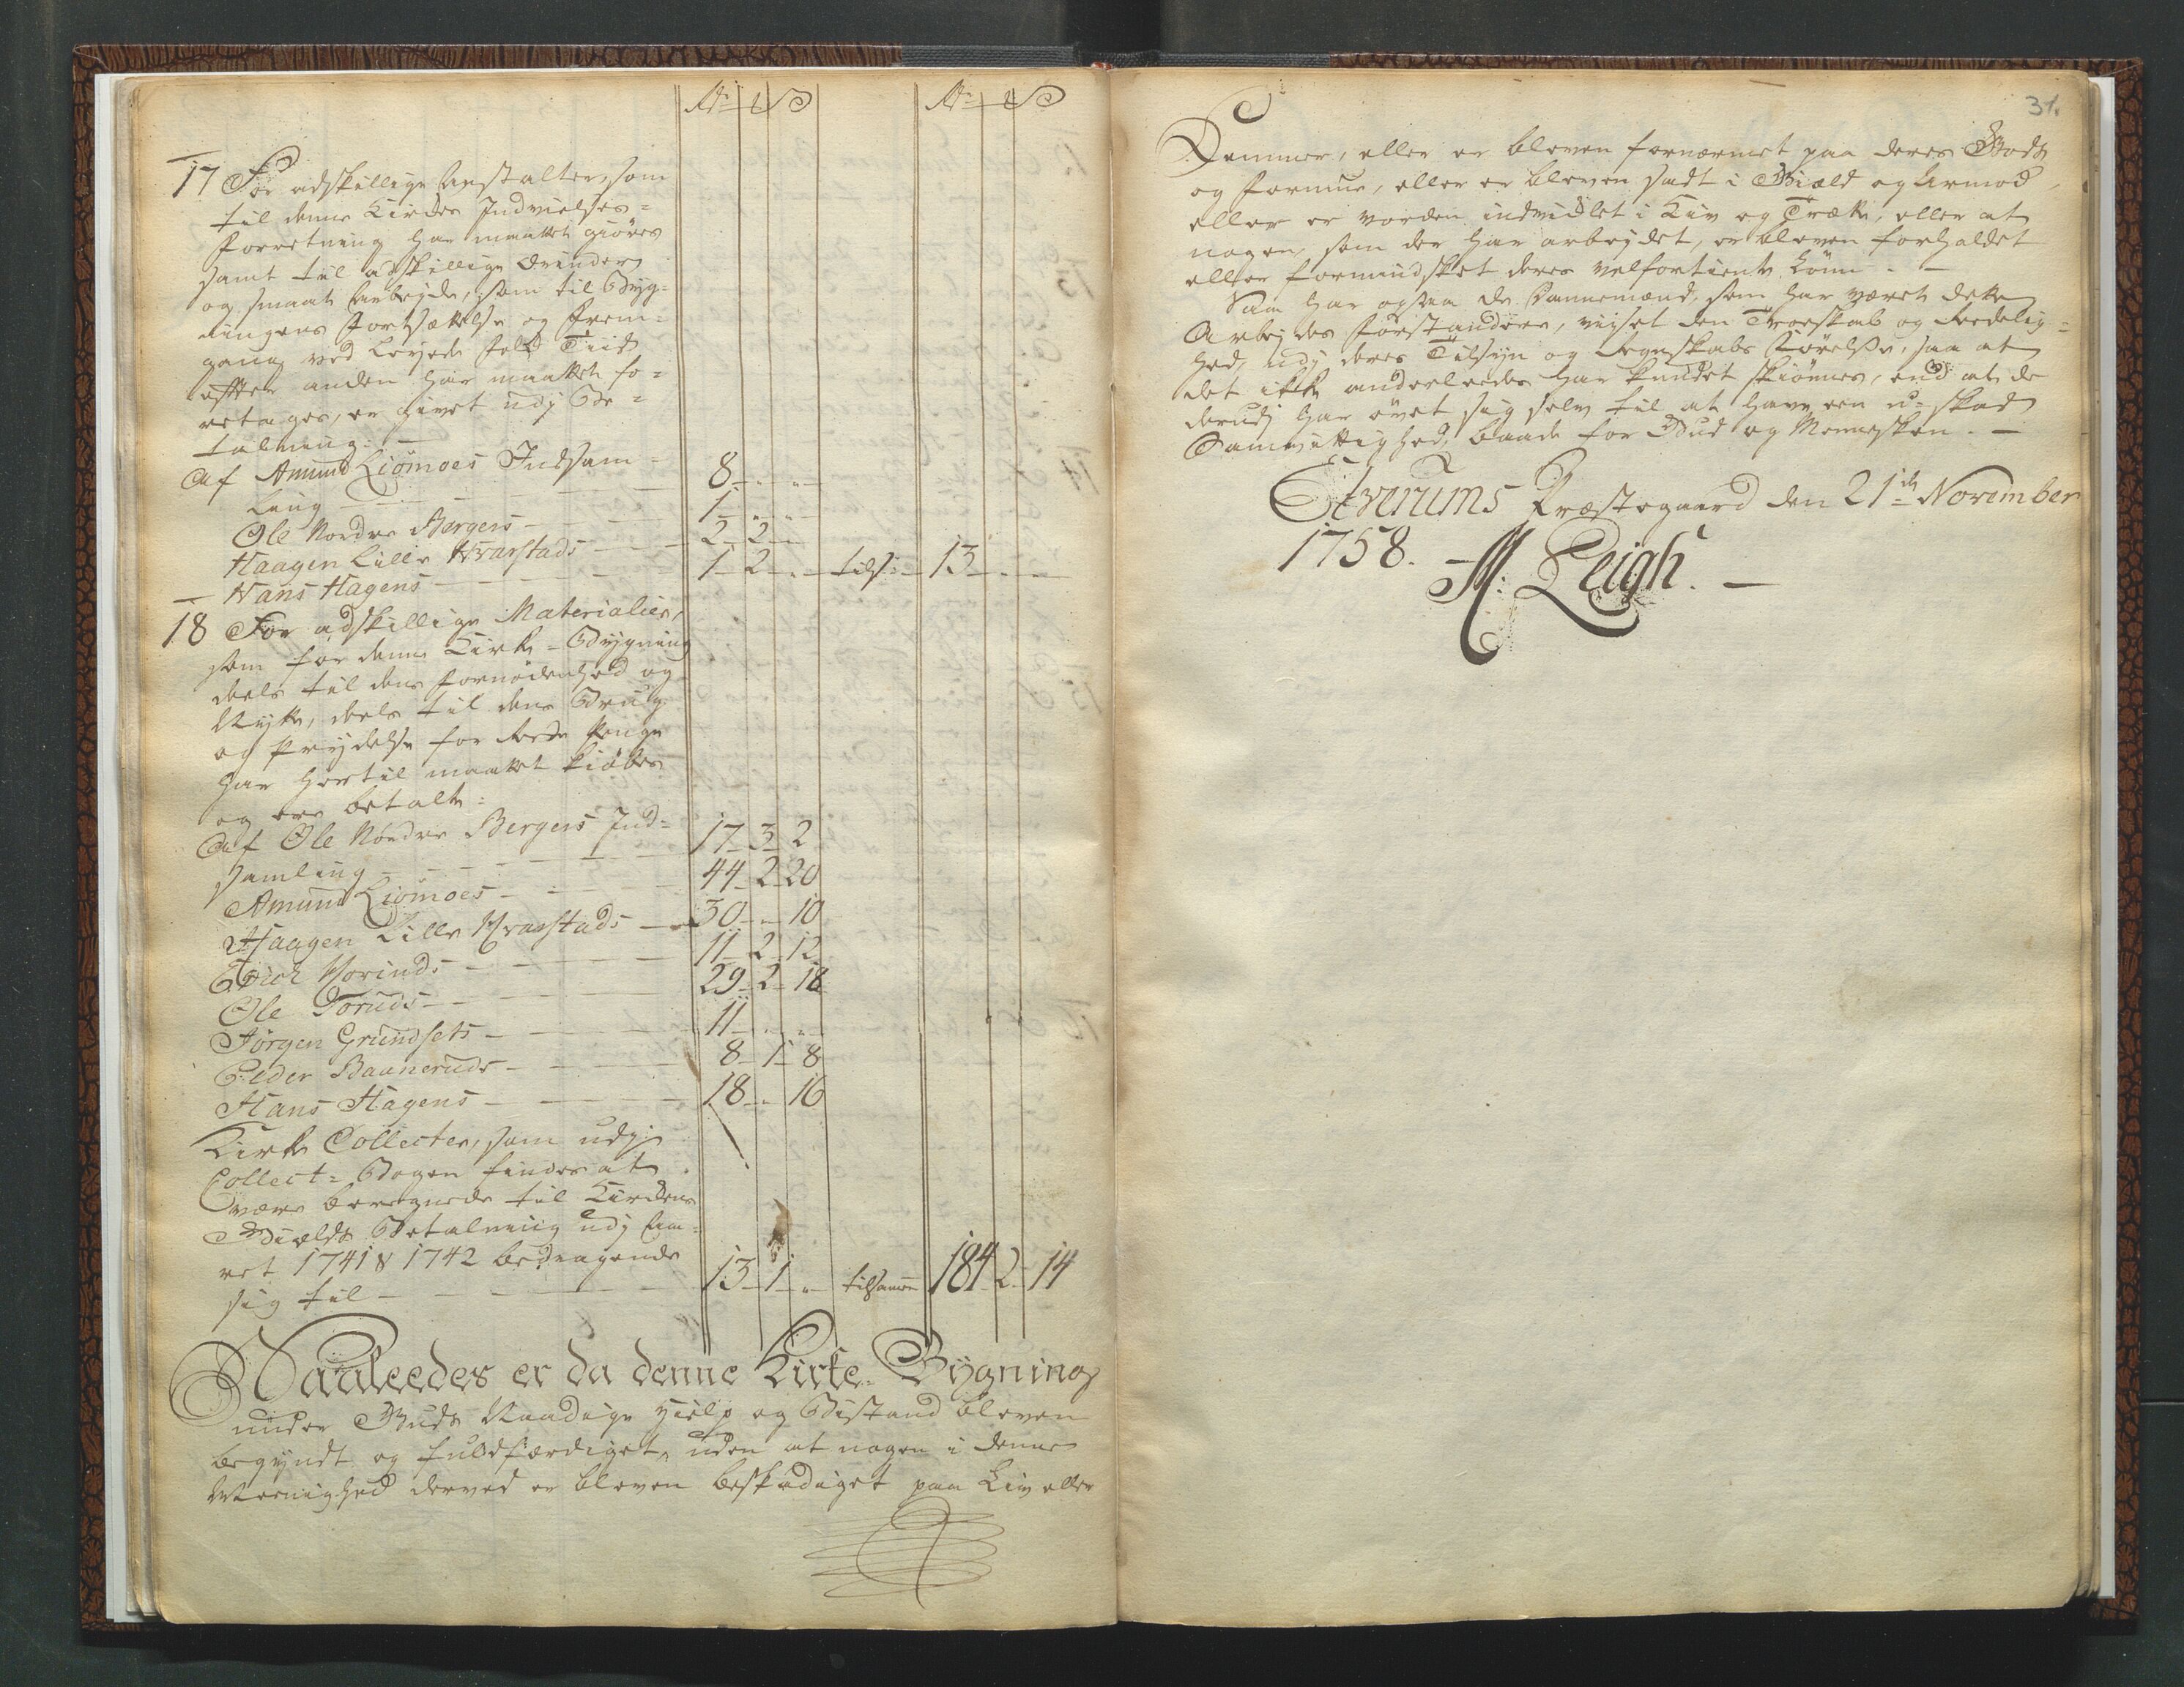 17 For adskillige Anstalter, som
til denne Kirkes Indvielses-
Forretning har maattet giöres
samt til adskillige Ærinder
og smaat Arbejde, som til Byg-
ningens Fortsættelse og Frem-
gang ved Lejede folk Tiid
efter anden har maattet fo-
retages, er givet udj Be-
talning: —
Af Amund Liömoes Indsam-
ling — 8
Ole Nordre Bergers — 1
Haagen Lille Hvarstads — 2 2
Hans Hagens — 1 2 tils: 13
18 For adskillige Materialier,
som for denne Kirke-Bygning
deels til dens fornödenhed og
Nytte, deels til dens Brug
og Prydelse for rede Penge
har hertil maattet kiöbes
og ere betalte:
Af Ole Nordre Bergers Ind-
samling — 17 3 2
Amund Liömoes — 44 2 20
Haagen Lille Hvarstads — 30 10
Erich Norinds — 11 2 12
Ole Toruds — 29 2 18
Jörgen Grundsets — 11
Peder Bauneruds — 8 1 8
Hans Hagens — 18 16
Kirke Collecter, som udj
Collect-Bogen findes at
være beregnede til Kirkens
Giælds Betalning udj Aa-
ret 1741 & 1742 bedragende
sig til — 13 1 tilsamn 184 2 14
Saaleedes er da denne Kirke-Bygning
under Guds Naadige Hielp og Bistand bleven
begyndt og fuldfærdiget, uden at nogen i denne
Meenighed derved er bleven beskadiget paa Liv eller
31.
Lemmer, eller er bleven fornærmet paa deres Gods
og Formue, eller er bleven sadt i Giæld og Armod,
eller er vorden indviklet i Kiv og Trætte, eller at
nogen, som der har arbejdet, er bleven forholdet
eller formindsket deres velfortiente Lönn. —
Saa har ogsaa de Dannemænd, som har været dette
Arbejdes Forstandere, viiset den Troeskab og Reedelig-
hed, udj deres Tilsyn og Regnskabs Förelse, saa at
det ikke anderleedes har kundet skiönnes, end at de
derudj har övet sig selv til at have een u-skad
Samvittighed, baade for Gud og Mennesken. —
Elverums Præstegaard den 21de November
1758. — M: Leigh. —